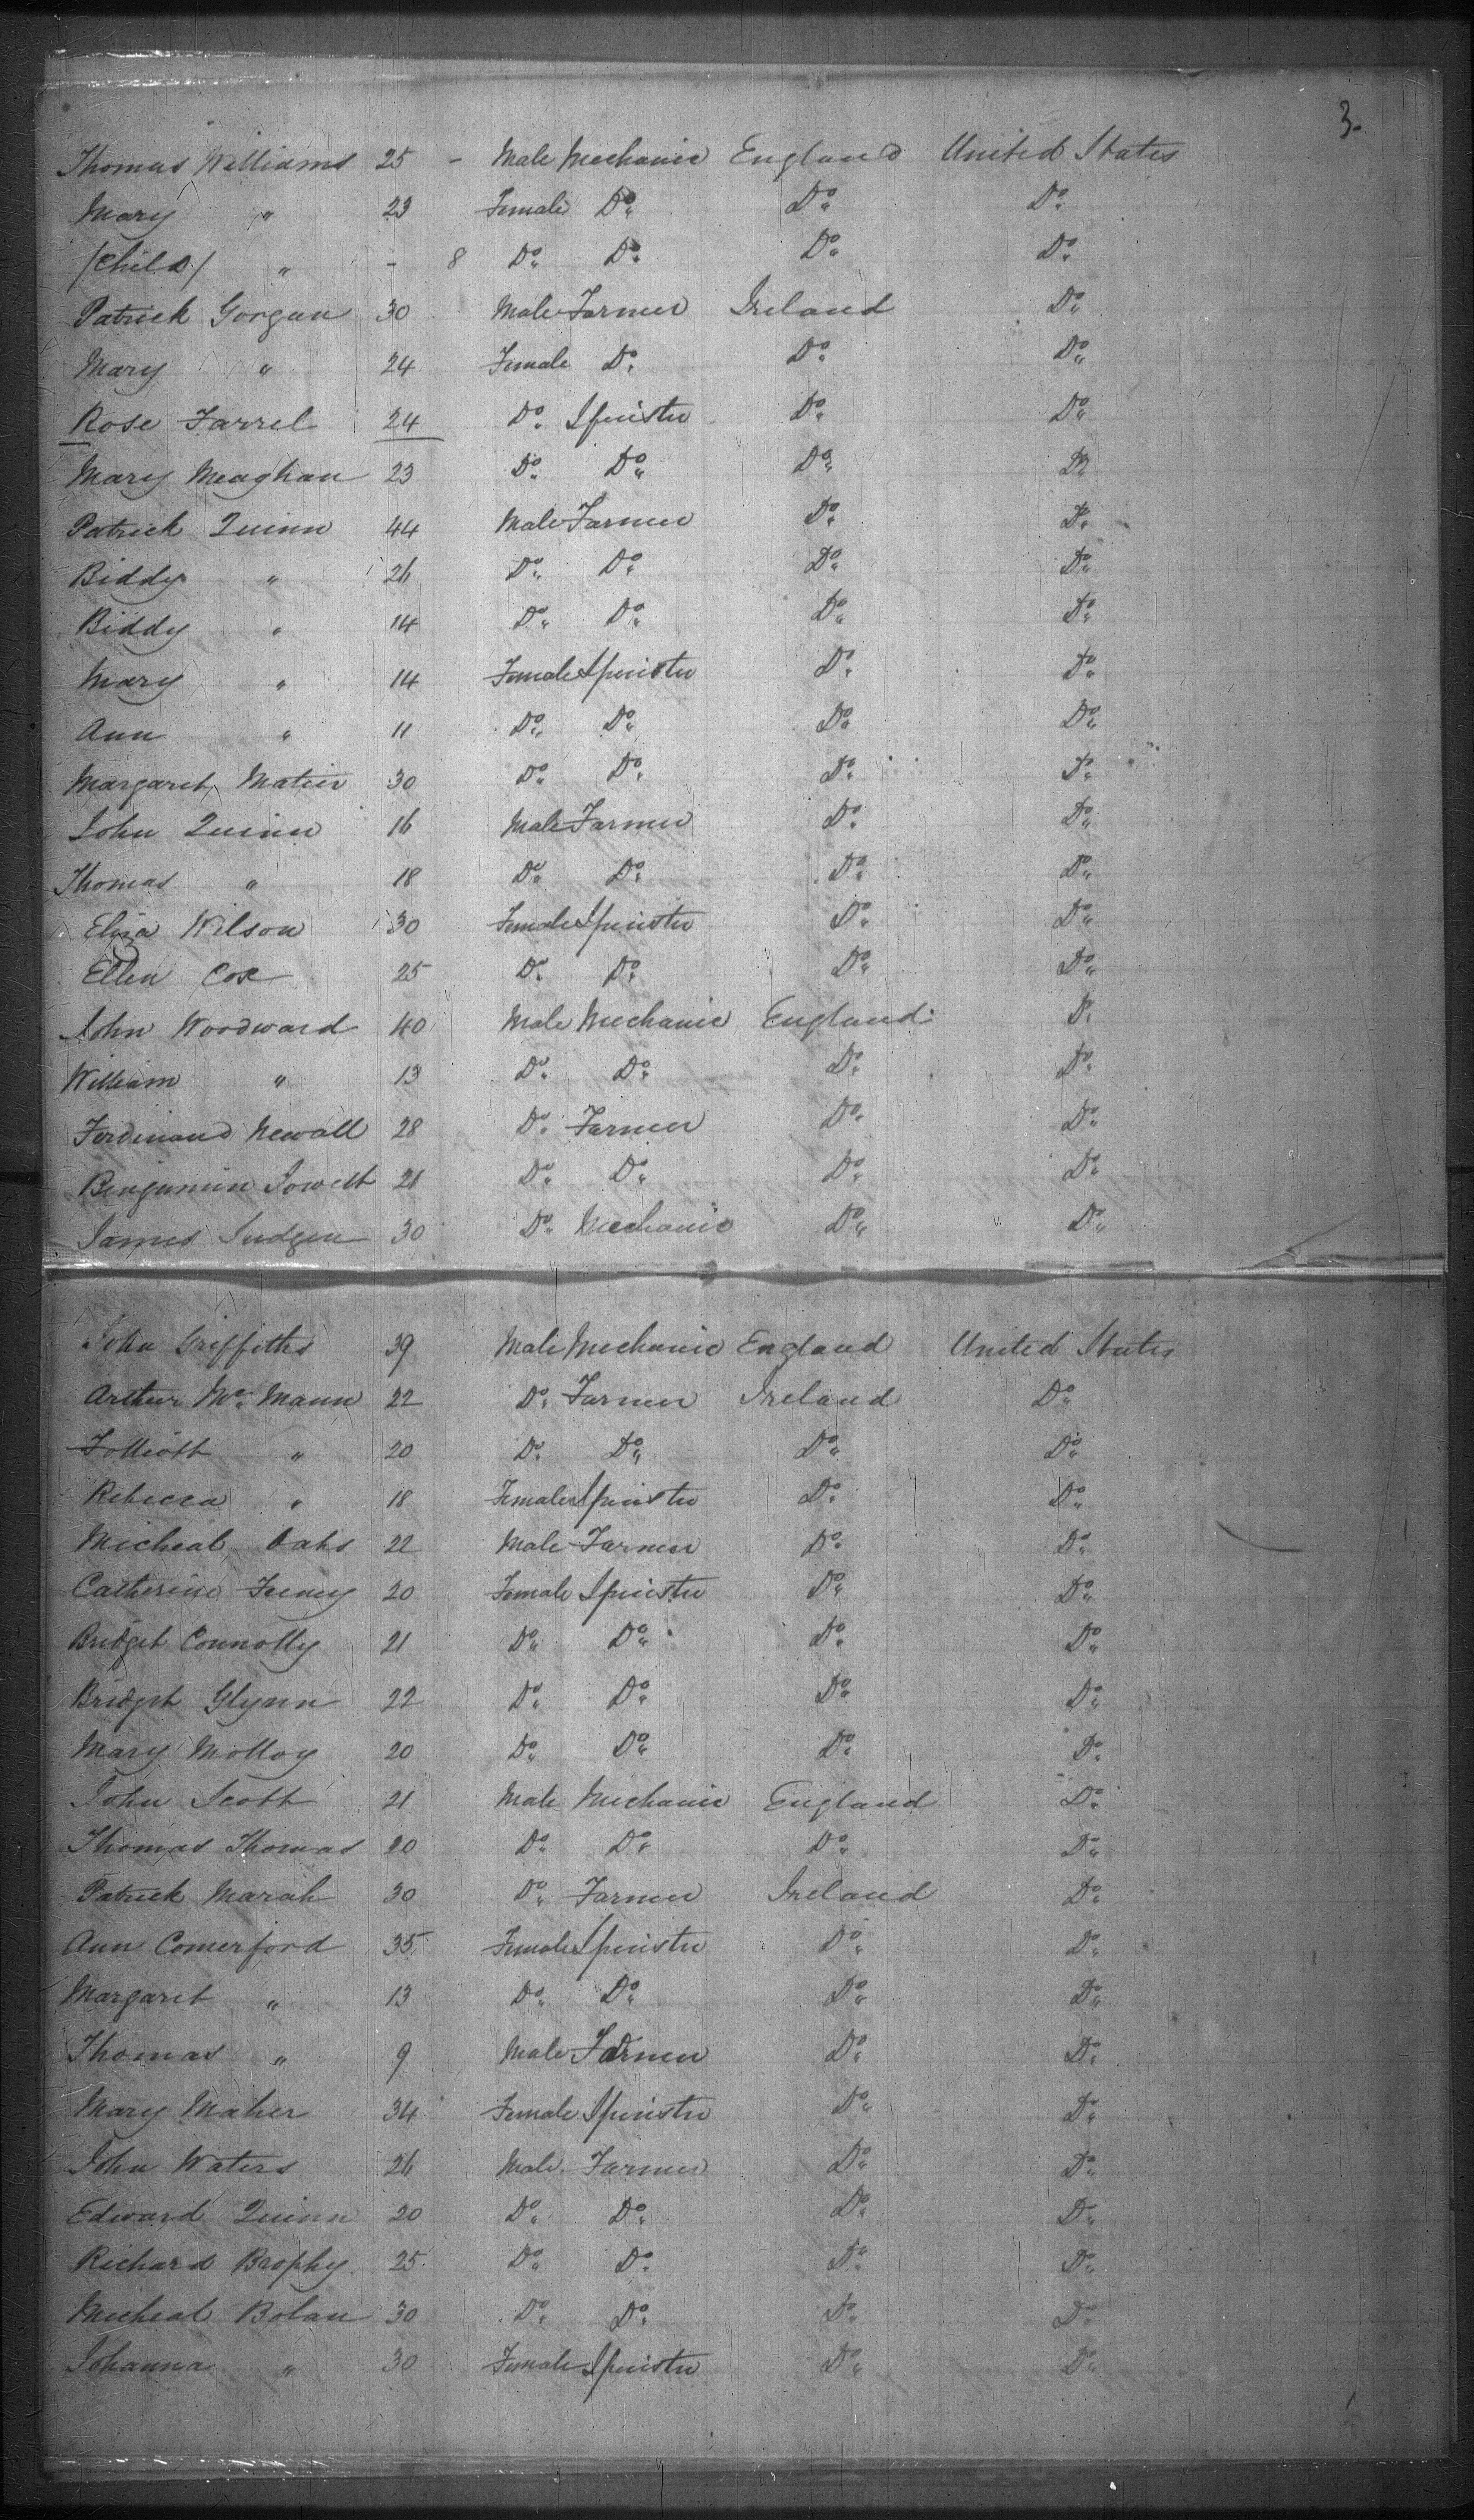 3.
Thomas Williams 25 - Male Mechanic England United States
Mary " 23 Female Do. Do. Do.
/Child/ " - 8 Do. Do. Do. Do.
Patrick Gorgan 30 Male Farmer Ireland Do.
Mary " 24 Female Do. Do. Do.
Rose Farrel 24 Do. Spinster Do. Do.
Mary Meaghan 23 Do. Do. Do. Do.
Patrick Quinn 44 Male Farmer Do. Do.
Biddy " 26 Do. Do. Do. Do.
Biddy " 14 Do. Do. Do. Do.
Mary " 14 Female Spinster Do. Do.
Ann " 11 Do. Do. Do. Do.
Margaret Matier 30 Do. Do. Do. Do.
John Quinn 16 Male Farmer Do. Do.
Thomas " 18 Do. Do. Do. Do.
Eliza Wilson 30 Female Spinster Do. Do.
Ellen Cox 25 Do. Do. Do. Do.
John Woodward 40 Male Mechanic England Do.
William " 13 Do. Do. Do. Do.
Ferdinand Newall 28 Do. Farmer Do. Do.
Benjamin Jowett 21 Do. Do. Do. Do.
James Sudgen 30 Do. Mechanic Do. Do.
John Griffiths 39 Male Mechanic England United States
Arthur Mc. Mann 22 Do. Farmer Ireland Do.
Folliott " 20 Do. Do. Do. Do.
Rebecca " 18 Female Spinster Do. Do.
Micheal Oaks 22 Male Farmer Do. Do.
Catherine Feeney 20 Female Spinster Do. Do.
Bridget Connolly 21 Do. Do. Do. Do.
Bridget Glynn 22 Do. Do. Do. Do.
Mary Molloy 20 Do. Do. Do. Do.
John Scott 21 Male Mechanic England Do.
Thomas Thomas 20 Do. Do. Do. Do.
Patrick Marah 30 Do. Farmer Ireland Do.
Ann Comerford 35 Female Spinster Do. Do.
Margaret " 13 Do. Do. Do. Do.
Thomas " 9 Male Farmer Do. Do.
Mary Maher 34 Female Spinster Do. Do.
John Waters 26 Male Farmer Do. Do.
Edward Quinn 20 Do. Do. Do. Do.
Richard Brophy 25 Do. Do. Do. Do.
Micheal Bolan 30 Do. Do. Do. Do.
Johanna " 30 Female Spinster Do. Do.